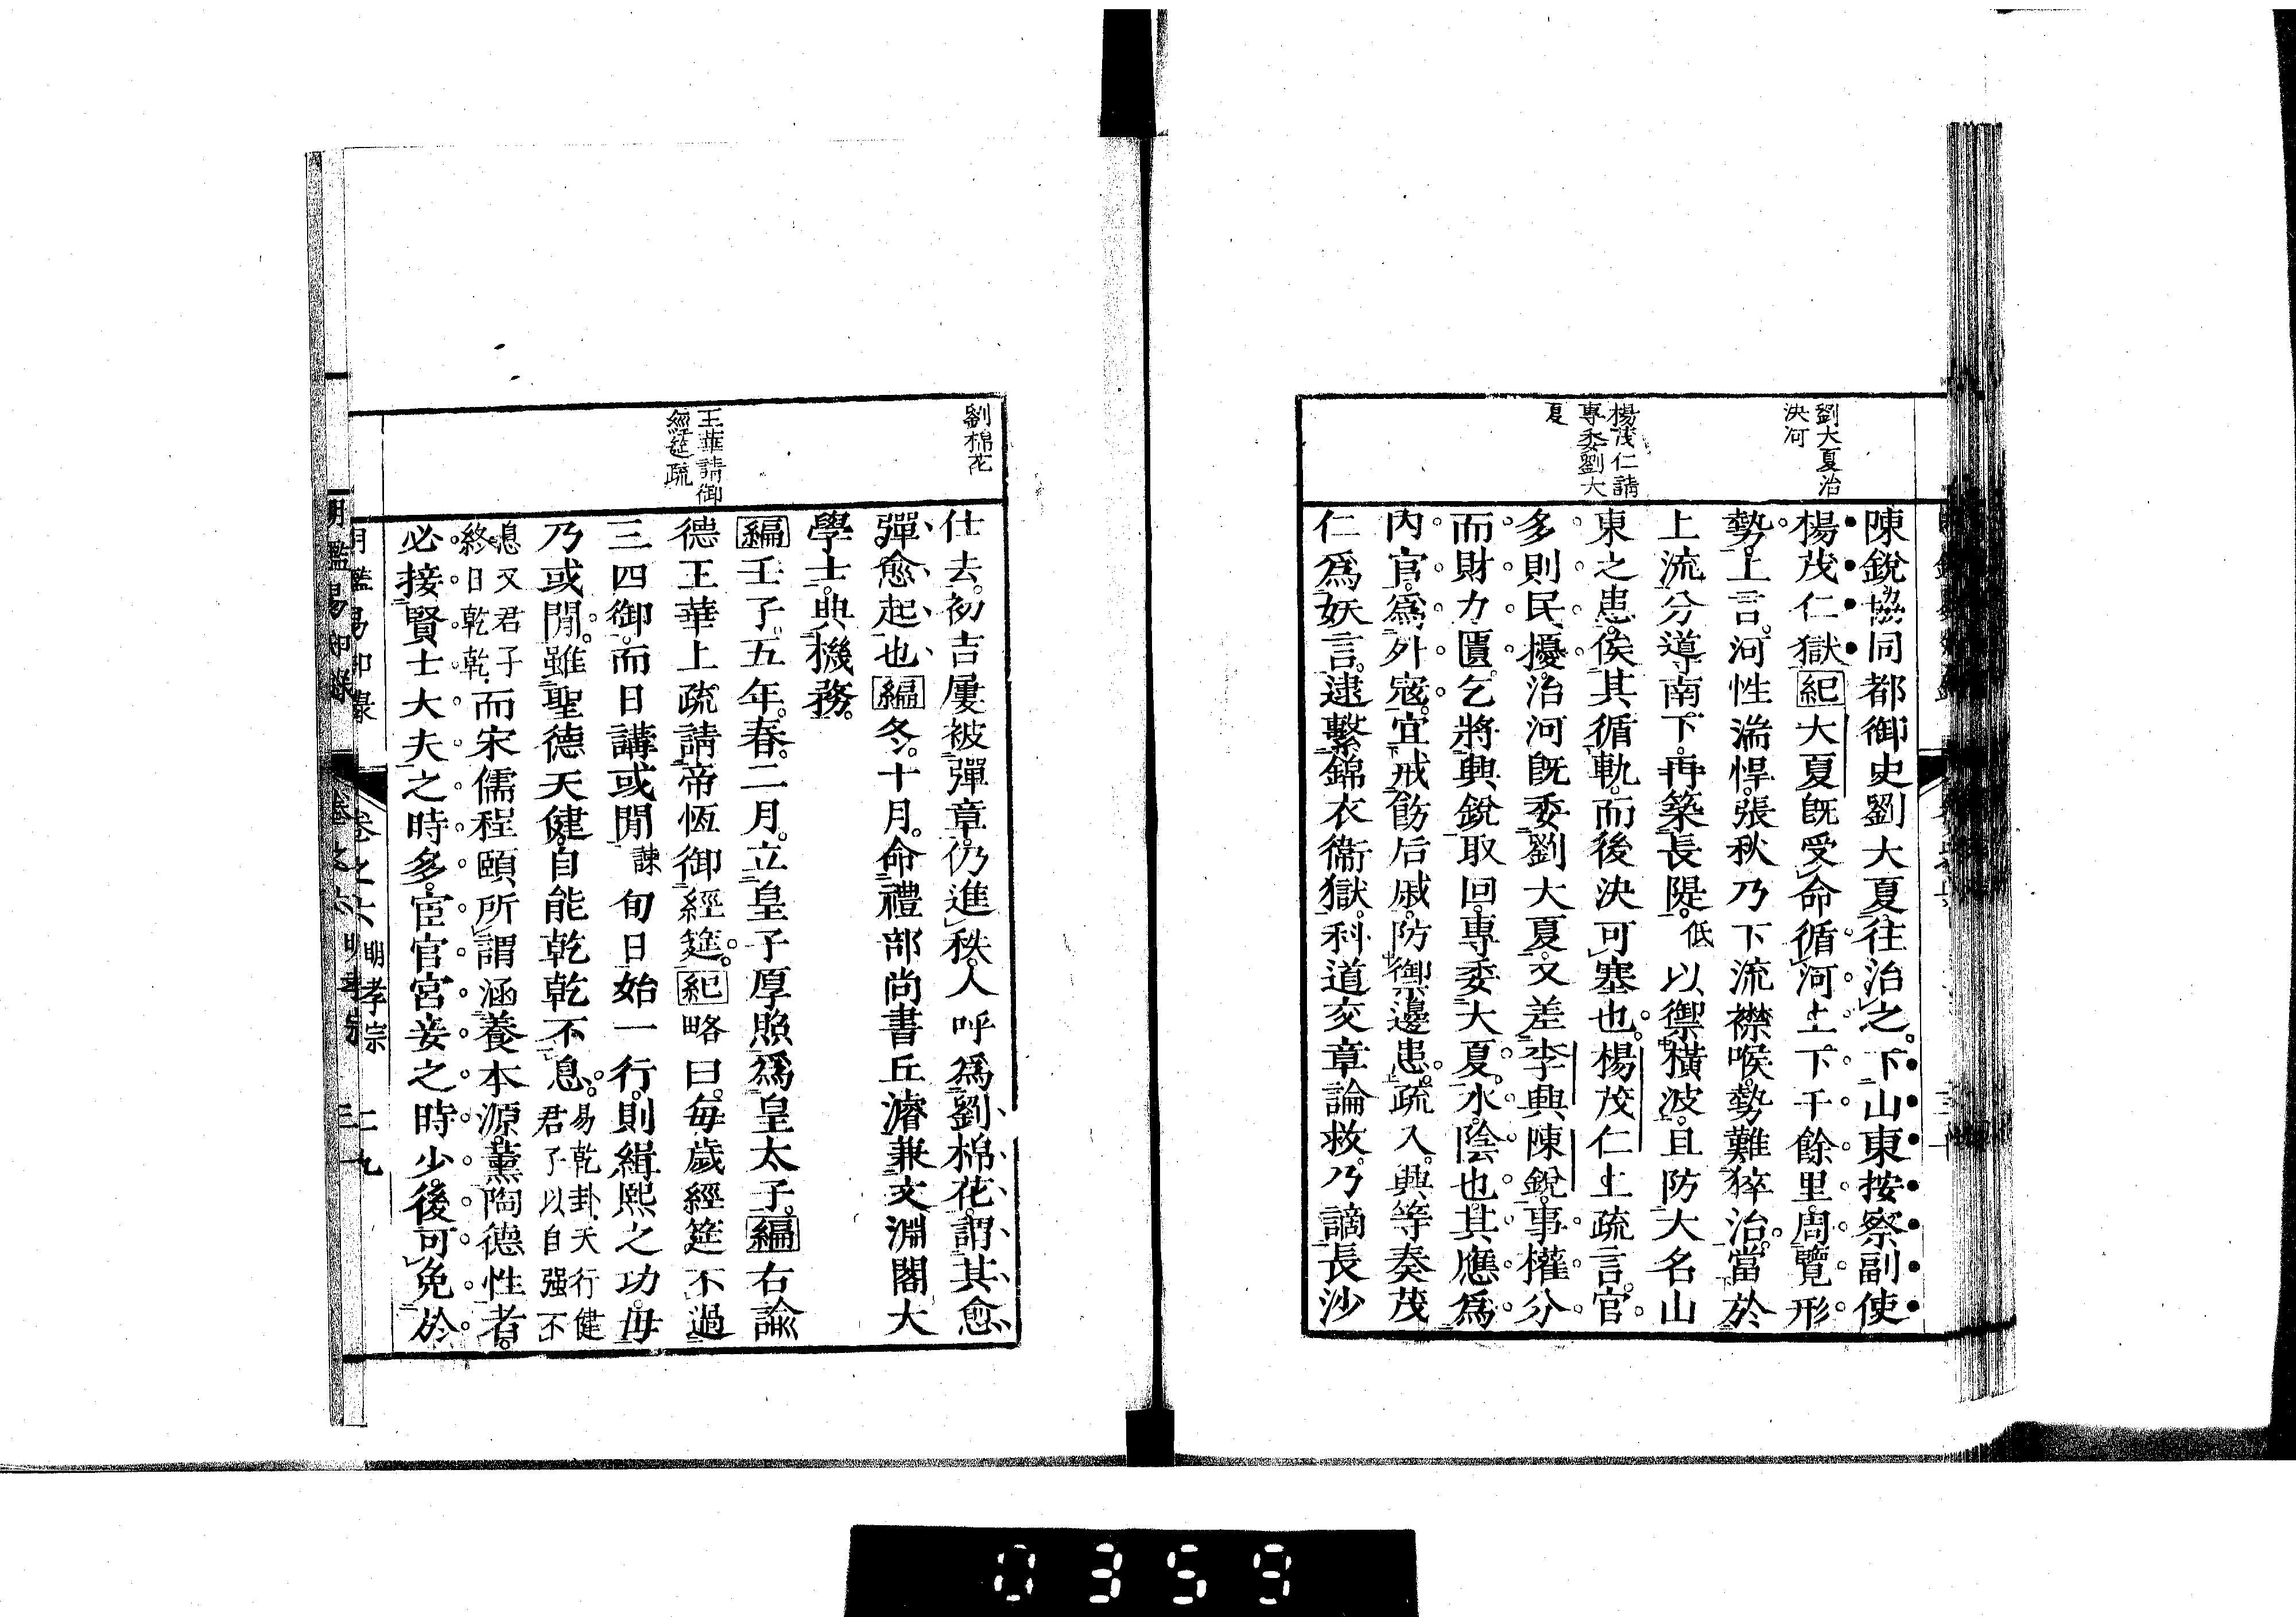 劉大夏治
決河
楊茂仁請
專委劉大
夏
陳銳協同都御史劉大夏往治之。下山東按察副使
楊茂仁獄紀大夏旣受命循河上下千餘里周覽形
勢。上言。河性湍悍。張秋乃下流襟喉。勢難猝治。當於
上流分導南下。再築長隄。低以禦橫波。且防大名山
東之患。俟其循軌。而後決可塞也。楊茂仁上疏言。官
多則民擾。治河旣委劉大夏。又差李興陳銳。事權分
而財力匱。乞將興銳取回。專委大夏。水陰也。其應爲
內官。爲外寇。宜戒飭后戚。防禦邊患。疏入。興等奏茂
仁爲妖言。逮繫錦衣衞獄。科道交章論救。乃謫長沙
劉棉花
王華請御
經筵疏
仕去。初吉屢被彈章。仍進秩。人呼爲劉棉花。謂其愈
彈愈起也編冬。十月。命禮部尚書丘濬兼文淵閣大
學士。典機務。
編壬子。五年。春。二月。立皇子厚照爲皇太子。編右諭
德王華上疏請帝恆御經筵。紀略曰。每歲經筵不過
三四御。而日講或閒諫旬日始一行。則緝熙之功。毋
乃或閒。雖聖德天健。自能乾乾不息。易乾卦天行健
君子以自强不
息又君子
終日乾乾而宋儒程頤所謂涵養本源。薰陶德性者。
必接賢士大夫之時多。宦官宮妾之時少。後可免於
卷之六 明孝宗 二九
明鑑易知錄 卷之六 明孝宗 三一
0359